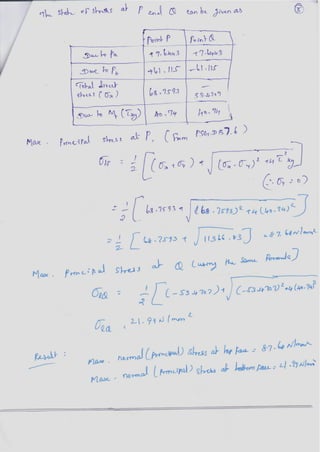 The state of stress at P and Q can be given as
5
Point P Point Q
Due to Pa +7.6443 +7.6443
Due to Pb +61.115 -61.115
Total direct stress (σx) 68.7593 -53.4707
Due to Mt (τxy) 40.74 40.74
Max. Principal stress at P, (from PSGDB 7.6)
= 1/2 [(σx + σy) + √(σx - σy)² + 4τ²xy]
(∵ σy = 0)
= 1/2 [68.7593 + √(68.7593)² + 4(40.74)²]
= 1/2 [68.7593 + √11366.83] = 87.68 N/mm²
Max. Principal stress at Q (using the same formula)
= 1/2 [(-53.4707) + √(-53.4707)² + 4(40.74)²]
= 21.99 N/mm²
Result :
Max. normal (principal) stress at top face = 87.68 N/mm²
Max. normal (principal) stress at bottom face = 21.99 N/mm²